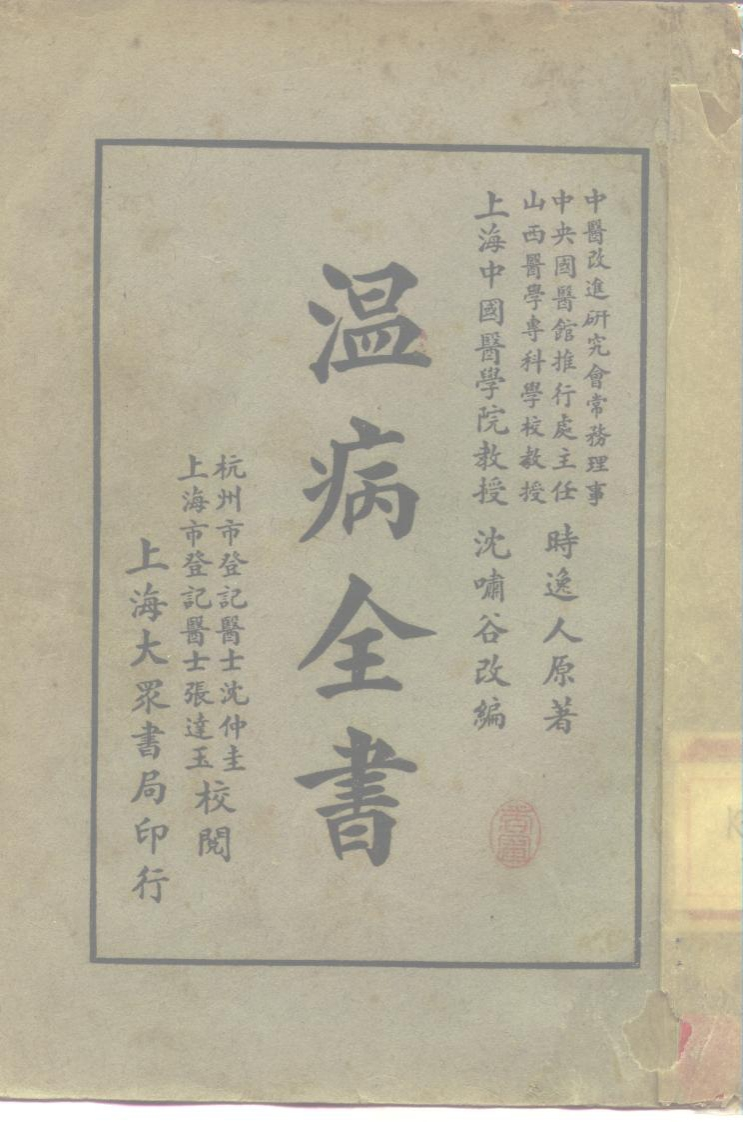 中醫改進研究會常務理事
中央國醫館推行處主任
山西醫學專科學校教授
時逸人原著
上海中國醫學院教授 沈嘯谷改編
温病全書
杭州市登記醫士沈仲圭
上海市登記醫士張達玉
校閱
上海大眾書局印行
K